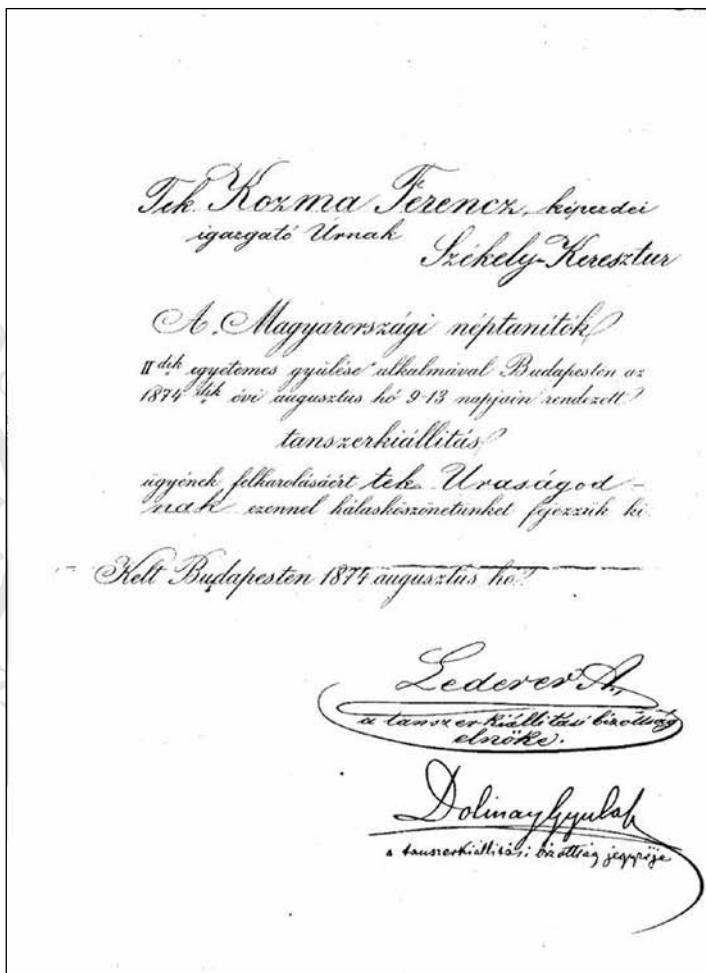 Tek. Kozma Ferencz, képezdei
igazgató Úrnak
Székely-Keresztur
A Magyarországi néptanítók
II dik egyetemes gyülése alkalmával Budapesten az
1874 dik évi augusztus hó 9-13 napjain rendezett
tanszerkiállitás
ügyének felkarolásáért tek. Uraságod-
nak ezennel hálásköszönetünket fejezzük ki.
Kelt Budapesten 1874 augusztus hó
Lederer A.,
a tanszerkiállitási bizottság
elnöke.
Dolinay Gyula
a tanszerkiállitási bizottság jegyzője